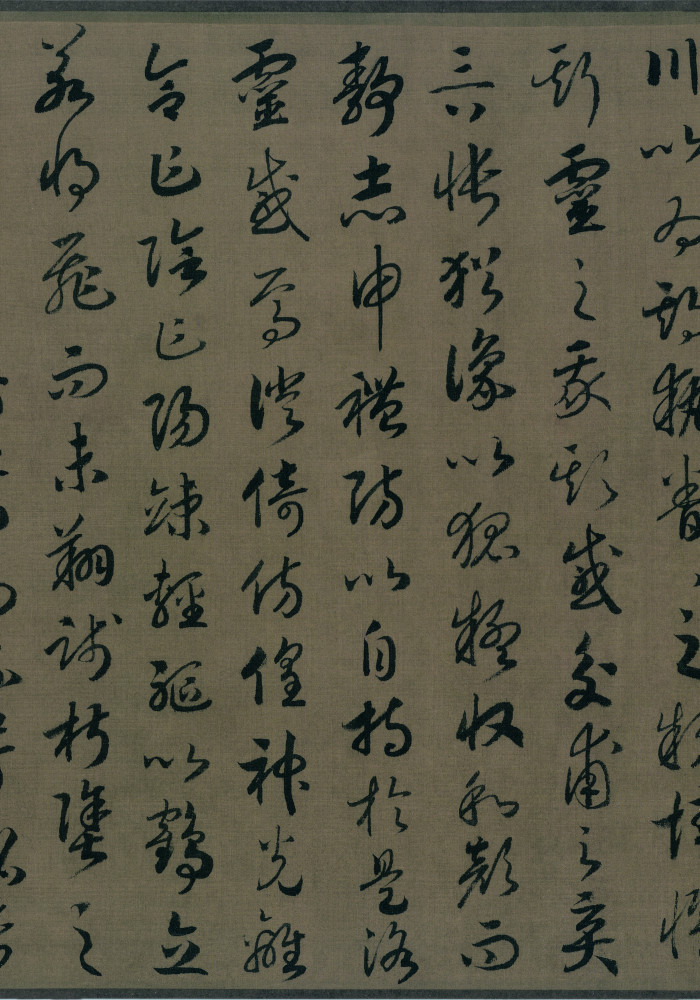 川以為期執眷々之款
斯靈之我欺感交甫之棄
言悵猶豫以狐疑收和顏而
靜志申禮防以自持於是洛
靈感焉徙倚傍徨神光離
合乍陰乍陽竦輕軀以鶴立
若將飛而未翔踐椒塗之